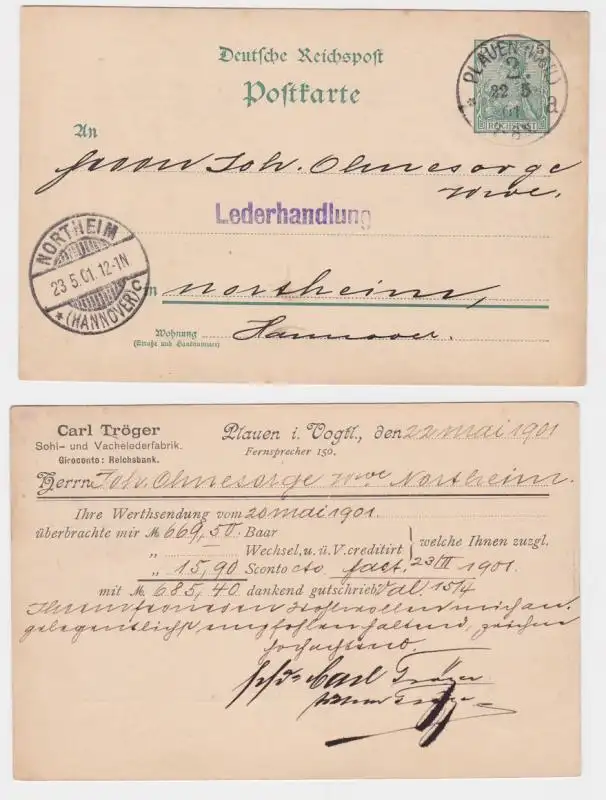 Deutsche Reichspost
Postkarte
PLAUEN (VOGTL)
2.
22 5
01
a
REICHSPOST
An
Herrn Joh. Ohnesorge
Wwe.
Lederhandlung
NORTHEIM
23.5.01.12-1N
* (HANNOVER) C
in Northeim,
Wohnung
(Straße und Hausnummer)
Hannover.
Carl Tröger
Sohl- und Vachelederfabrik.
Giroconto: Reichsbank.
Plauen i. Vogtl., den 22 Mai 1901
Fernsprecher 150.
Herrn Joh. Ohnesorge Wwe Northeim.
Ihre Werthsendung vom 20 Mai 1901
überbrachte mir M. 669,50 Baar
„ Wechsel, u. ü. V. creditirt
welche Ihnen zuzgl.
„ 15,90 Sconto cto fact. 23/II 1901.
mit M. 685,40 dankend gutschrieb. Val 15/4
Ihrem Wohlwollen mich an-
gelegentlichst empfohlen haltend, zeichne
hochachtend.
Carl Tröger